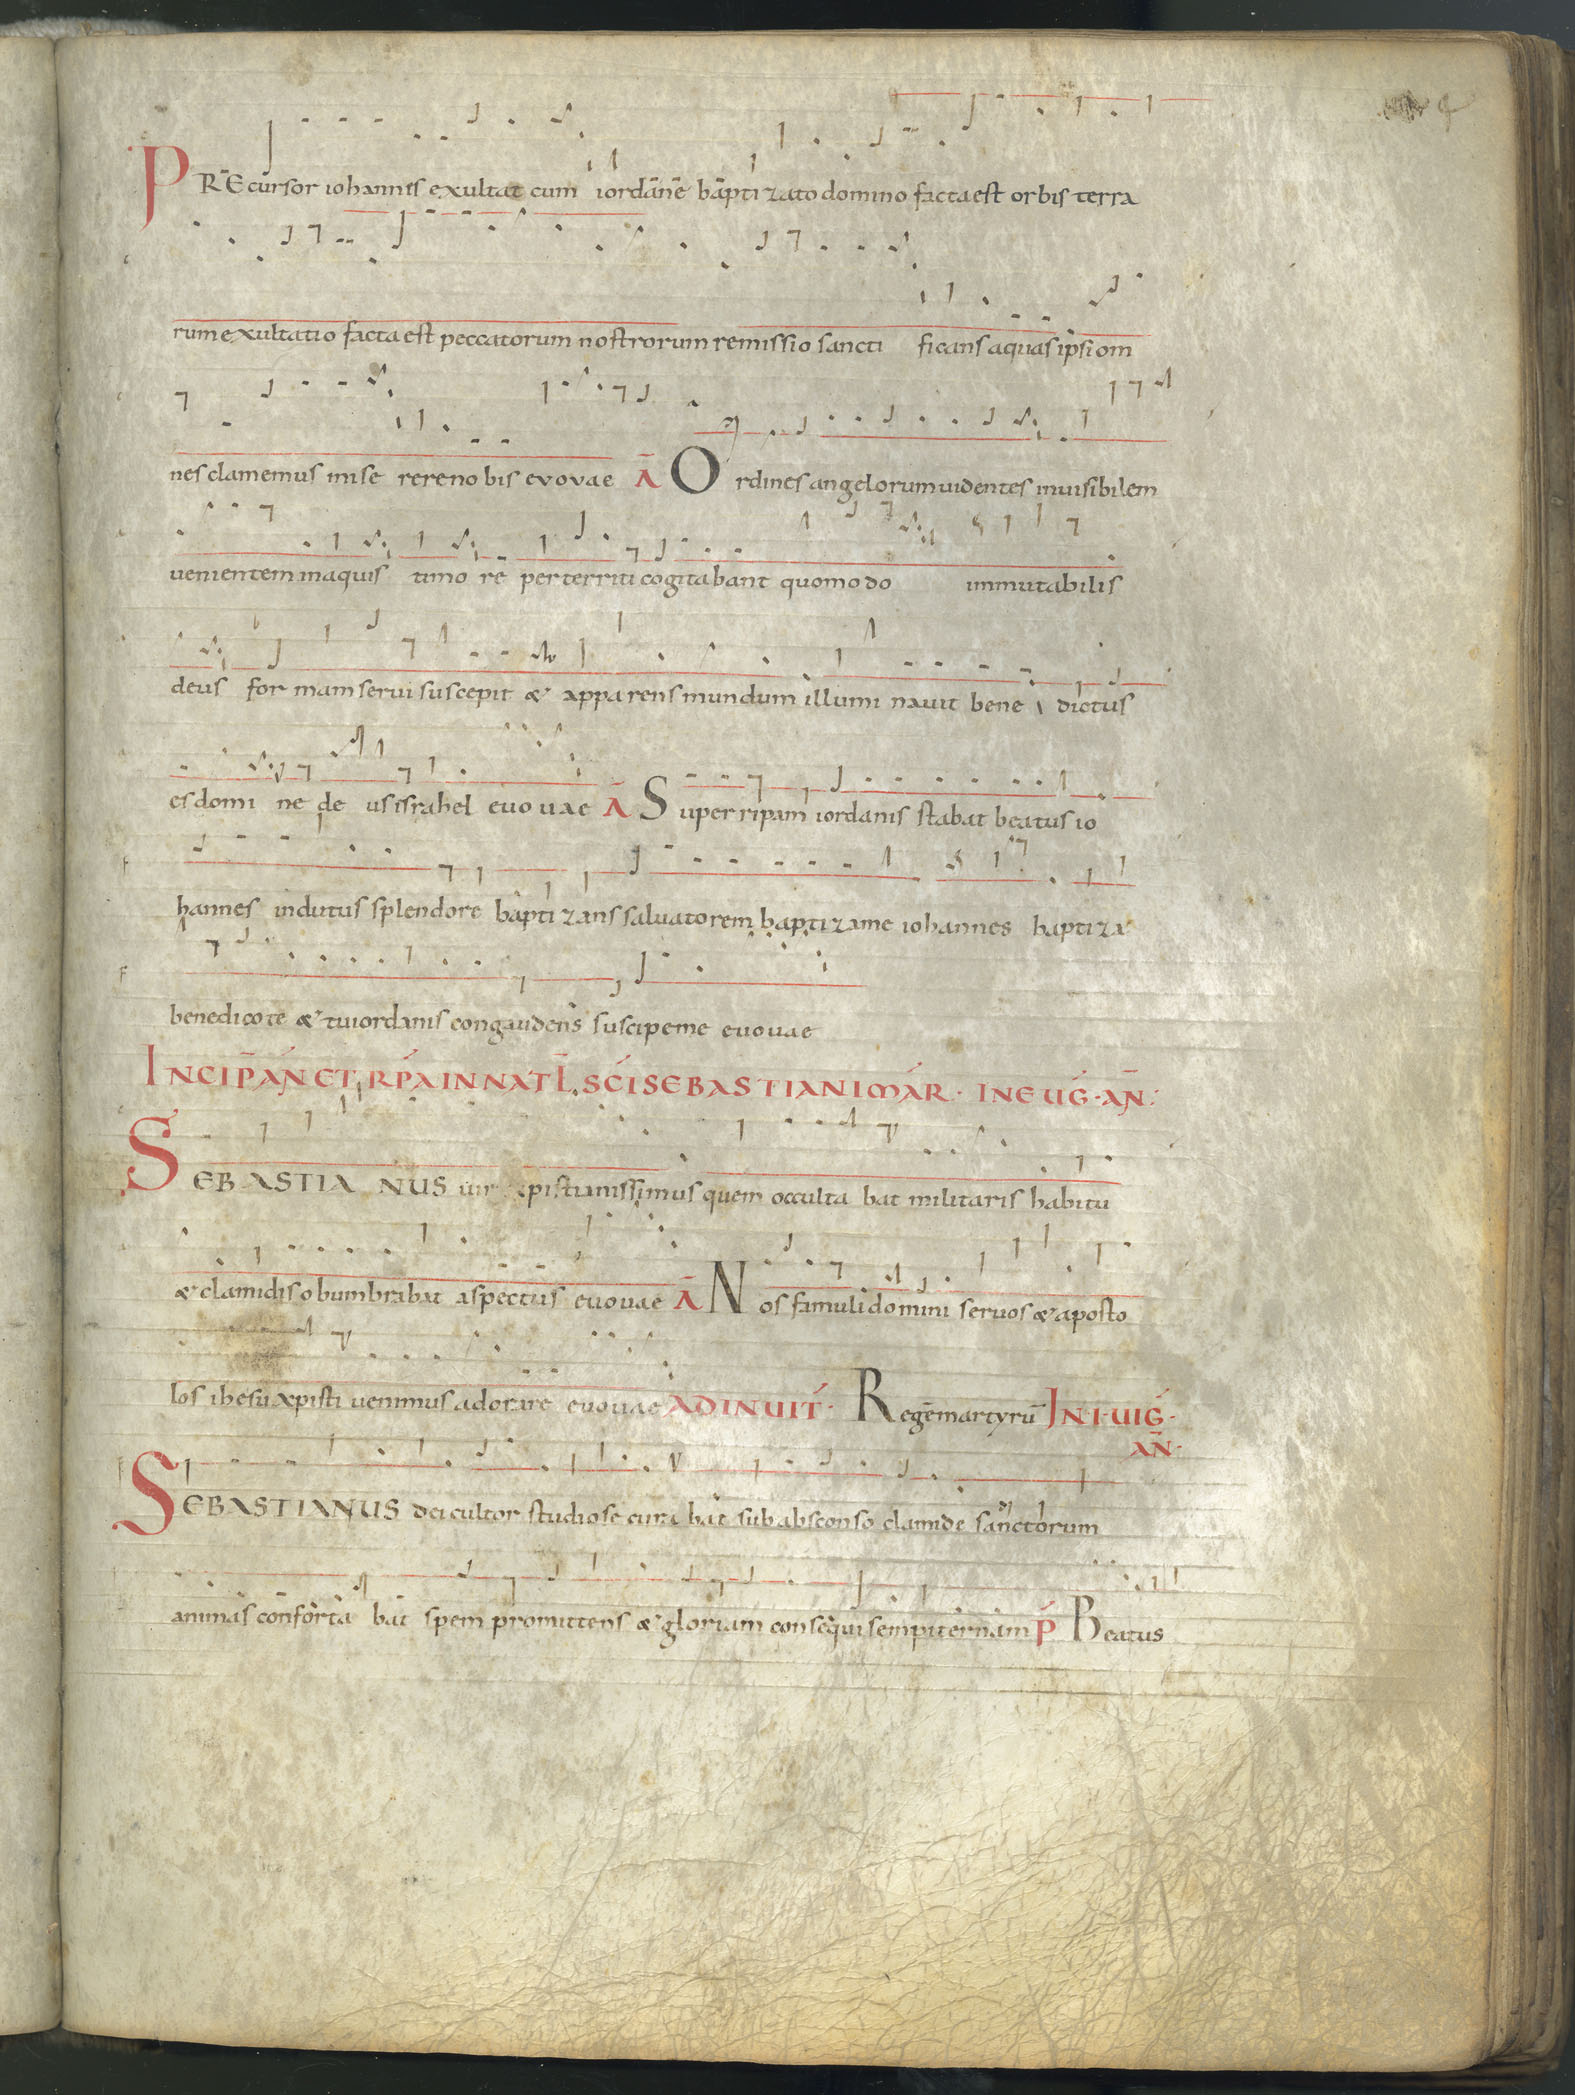 PRECursor iohannes exultat cum iordane baptizato domino facta est orbis terra
rum exultatio facta est peccatorum nostrorum remissio sancti ficans aquas ipsi om
nes clamemus mise rere nobis evovae Ā Ordines angelorum uidentes inuisibilem
uenientem in aquis timo re perterriti cogitabant quomodo immutabilis
deus for mam serui suscepit & apparens mundum illumi nauit bene dictus
es domi ne de us israhel euouae Ā Super ripam iordanis stabat beatus io
hannes indutus splendore bapti zans saluatorem baptiza me iohannes baptiza
benedico te & tu iordanis congaudens suscipe me euouae
INCIP AÑ ET RP̄A IN NATL̄ SCĪ SEBASTIANI MAR· IN EUḠ· AÑ:
SEBASTIA NUS uir xpistianissimus quem occulta bat militaris habitu
& clamidis obumbrabat aspectus euouae Ā Nos famuli domini seruos & aposto
los ihesu xpisti uenimus adorare euouae AD INUIT̄· Regē martyrū IN I· UIḠ·
AÑ·
SEBASTIANUS dei cultor studiose cura bat sub absconso clamide sanctorum
animas conforta bat spem promittens & gloriam consequi sempiternam P̄ Beatus